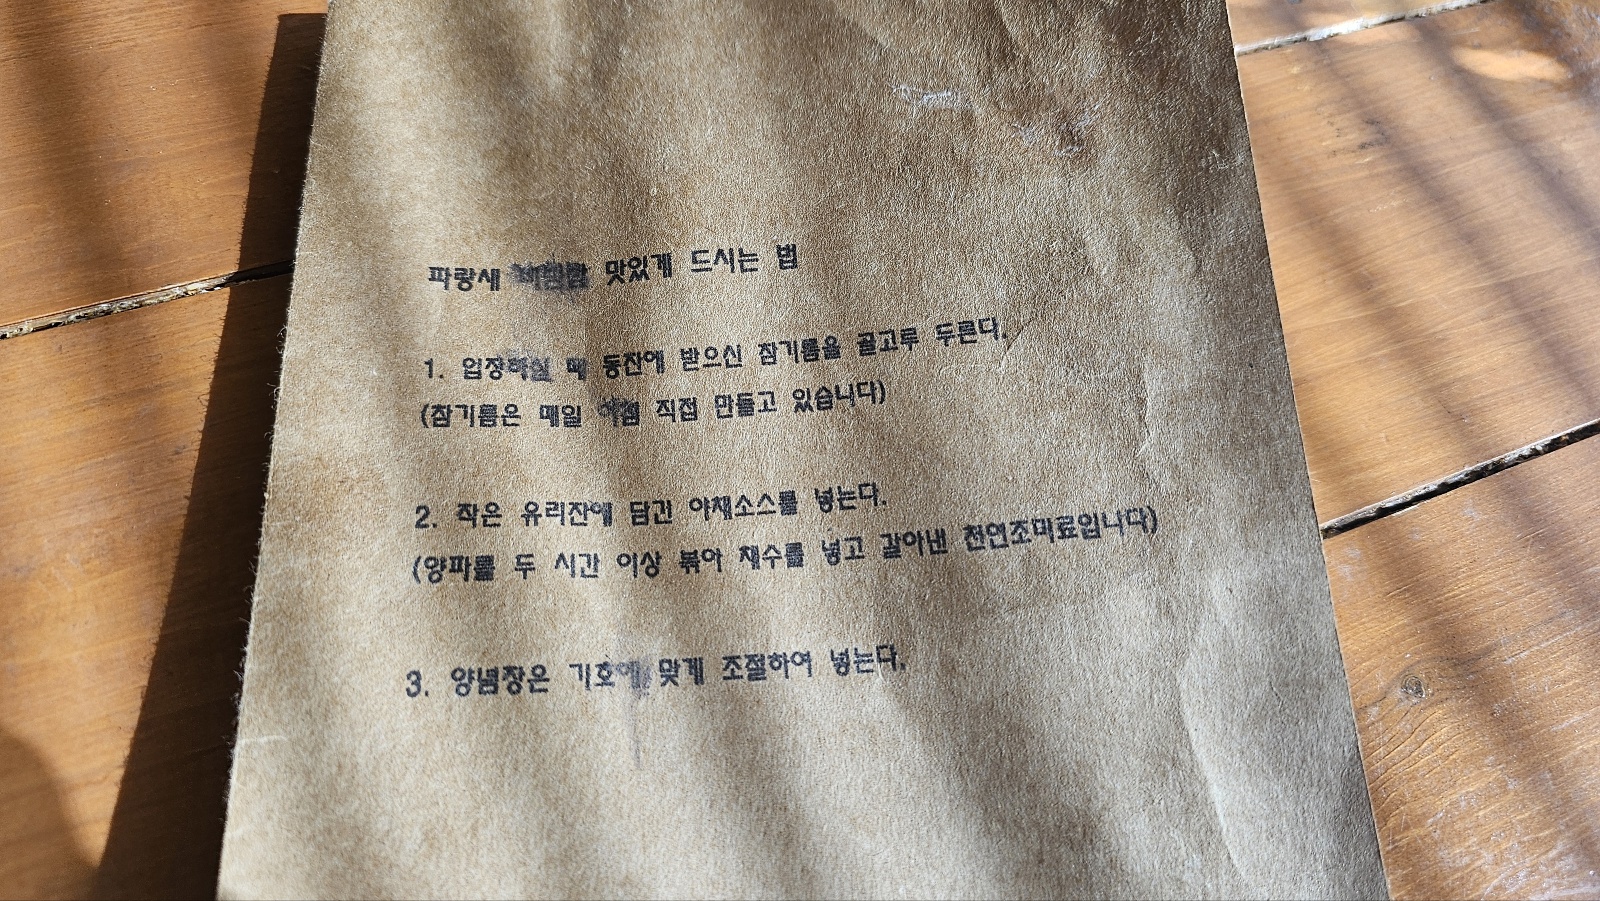 파랑새 비빔밥 맛있게 드시는 법
1. 입장하실 때 동잔에 받으신 참기름을 골고루 두른다.
(참기름은 매일 아침 직접 만들고 있습니다)
2. 작은 유리잔에 담긴 야채소스를 넣는다.
(양파를 두 시간 이상 볶아 채수를 넣고 갈아낸 천연조미료입니다)
3. 양념장은 기호에 맞게 조절하여 넣는다.